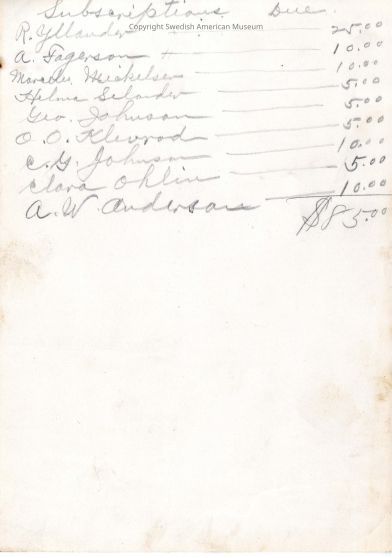 Subscriptions Due.
Copyright Swedish American Museum
R. Yllander 25.00
A. Fagerson + 10.00
10.00
Helma Selander 5.00
Geo. Johnson 5.00
O. O. Klevrod 5.00
C. G. Johnson 10.00
Clara Ohlin 5.00
A. W. Anderson 10.00
$85.00